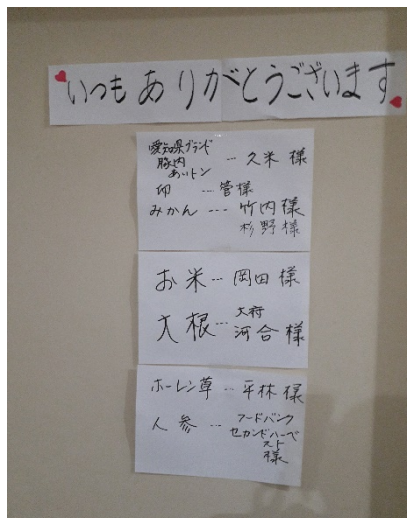 いつもありがとうございます
愛知県ブランド
豚肉
あいトン … 久米 様
卵 … 菅様
みかん … 竹内様
杉野様
お米 … 岡田 様
大根 … 大府
河合 様
ホーレン草 … 平林 様
人参 … フードバンク
セカンドハーベ
スト
様